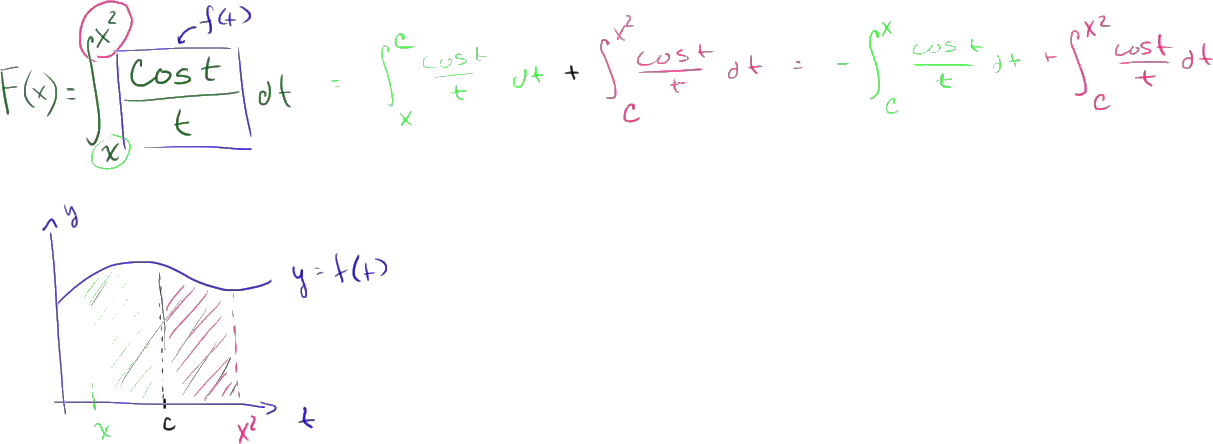 f(t)
F(x) = ∫_x^{x²} \frac{cos t}{t} dt = ∫_x^c \frac{cos t}{t} dt + ∫_c^{x²} \frac{cos t}{t} dt = - ∫_c^x \frac{cos t}{t} dt + ∫_c^{x²} \frac{cos t}{t} dt
y
y = f(t)
x c x² t